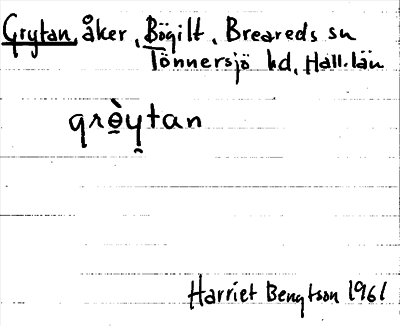 Grytan, åker, Bögilt, Breareds sn
Tönnersjö hd, Hall. län
grè̱y̱tan
Harriet Bengtson 1961